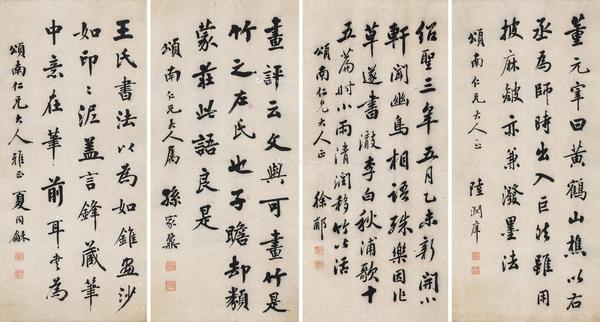 董元宰曰黃鶴山樵以右
丞為師時出入巨然雖用
披麻皴亦兼潑墨法
頌南仁兄大人正 陸潤庠
紹聖三年五月乙未新開小
軒聞幽鳥相語殊樂因作
草遂書徹李白秋浦歌十
五篇時小雨清潤移竹活
頌南仁兄大人正 徐郙
畫評云文與可畫竹是
竹之左氏也子瞻却類
蒙莊此語良是
頌南仁兄大人屬 孫家鼐
王氏書法以為如錐畫沙
如印〻泥蓋言鋒藏筆
中意在筆前耳書為
頌南仁兄大人雅正 夏同龢